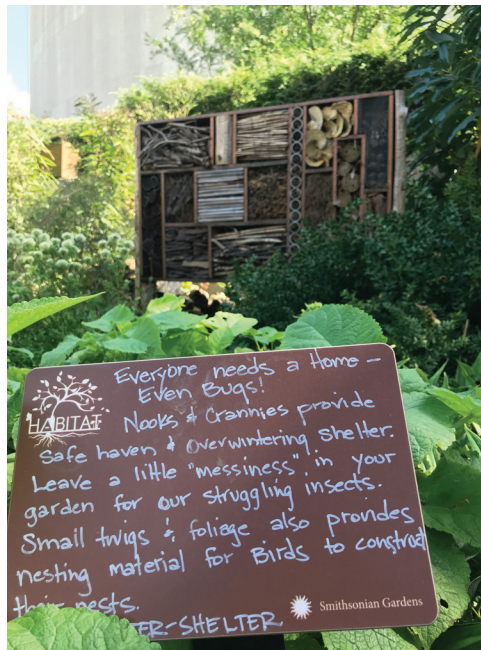 Everyone needs a Home –
Even Bugs!
HABITAT
Nooks & Crannies provide
Safe haven & overwintering shelter.
Leave a little "messiness" in your
garden for our struggling insects.
Small twigs & foliage also provides
nesting material for Birds to construct
their nests.
ER-SHELTER
Smithsonian Gardens